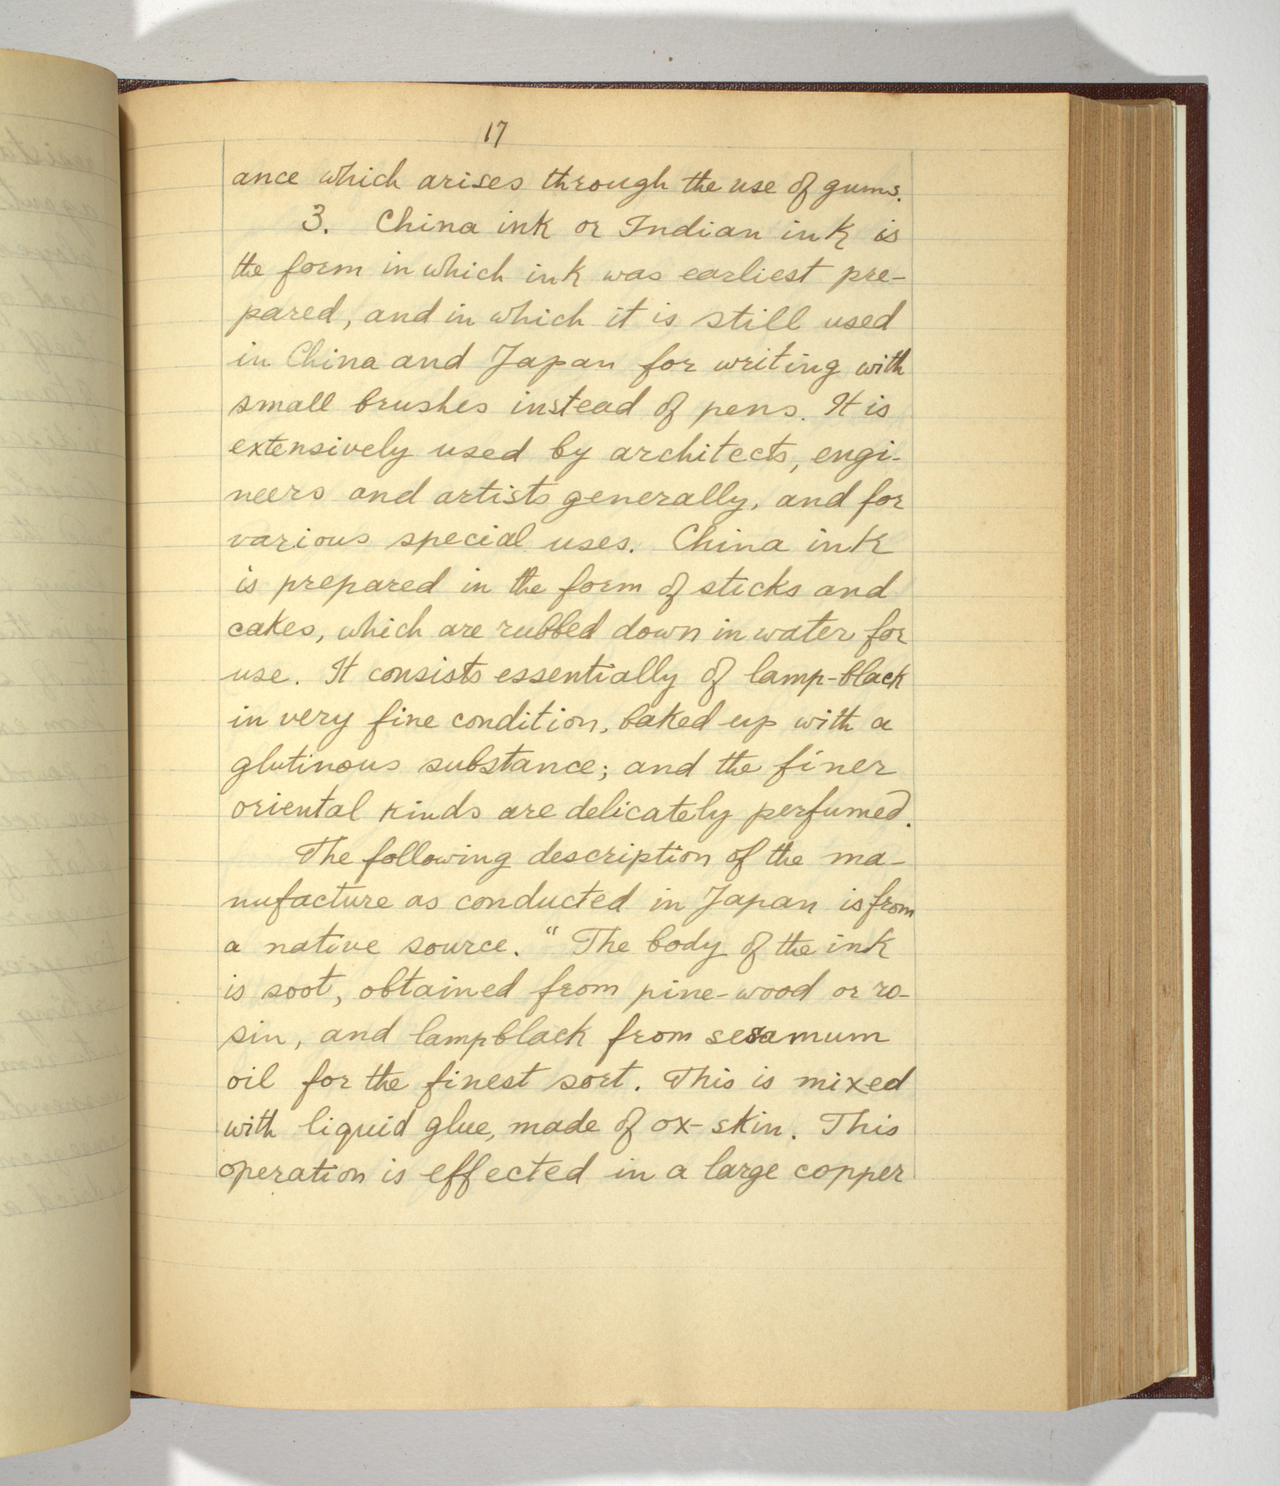 17
ance which arises through the use of gums.
3. China ink or Indian ink is
the form in which ink was earliest pre-
pared, and in which it is still used
in China and Japan for writing with
small brushes instead of pens. It is
extensively used by architects, engi-
neers and artists generally, and for
various special uses. China ink
is prepared in the form of sticks and
cakes, which are rubbed down in water for
use. It consists essentially of lamp-black
in very fine condition, baked up with a
glutinous substance; and the finer
oriental kinds are delicately perfumed.
The following description of the ma-
nufacture as conducted in Japan is from
a native source. "The body of the ink
is soot, obtained from pine-wood or ro-
sin, and lampblack from sesamum
oil for the finest sort. This is mixed
with liquid glue, made of ox-skin. This
operation is effected in a large copper